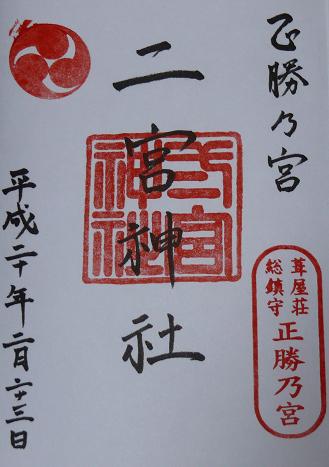 正勝乃宮
二宮神社
二宮神社
葺屋荘
総鎮守
正勝乃宮
平成二十年二月二十三日